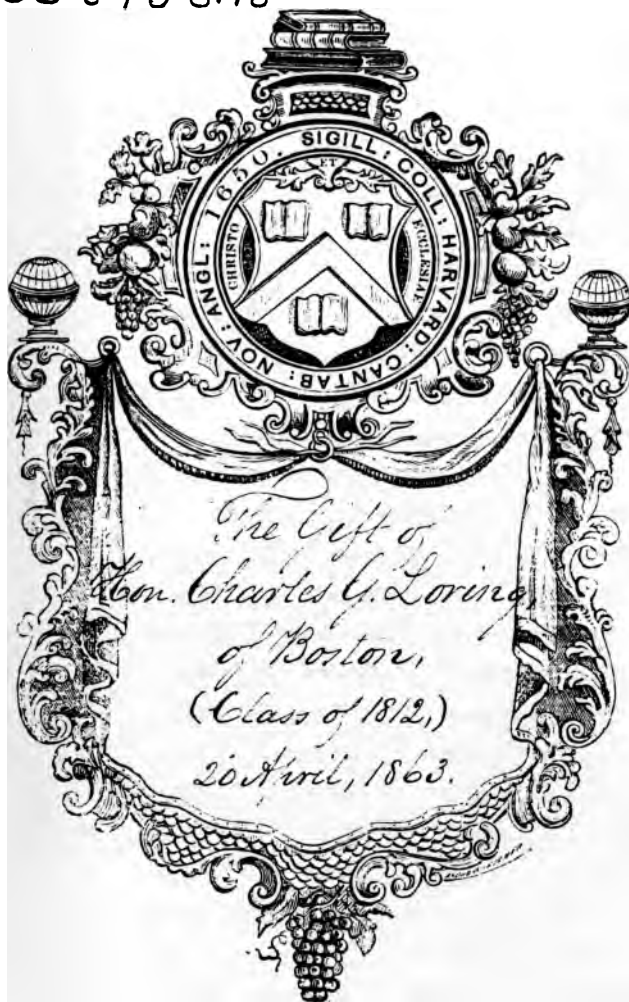 SIGILL: COLL: HARVARD: CANTAB: NOV: ANGL: 1650.
CHRISTO ET ECCLESIAE
The Gift of
Hon. Charles G. Loring,
of Boston,
(Class of 1812,)
20 April, 1863.